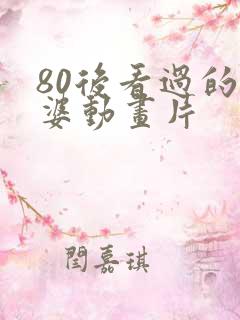 80後看過的
婆動畫片
閆嘉琪